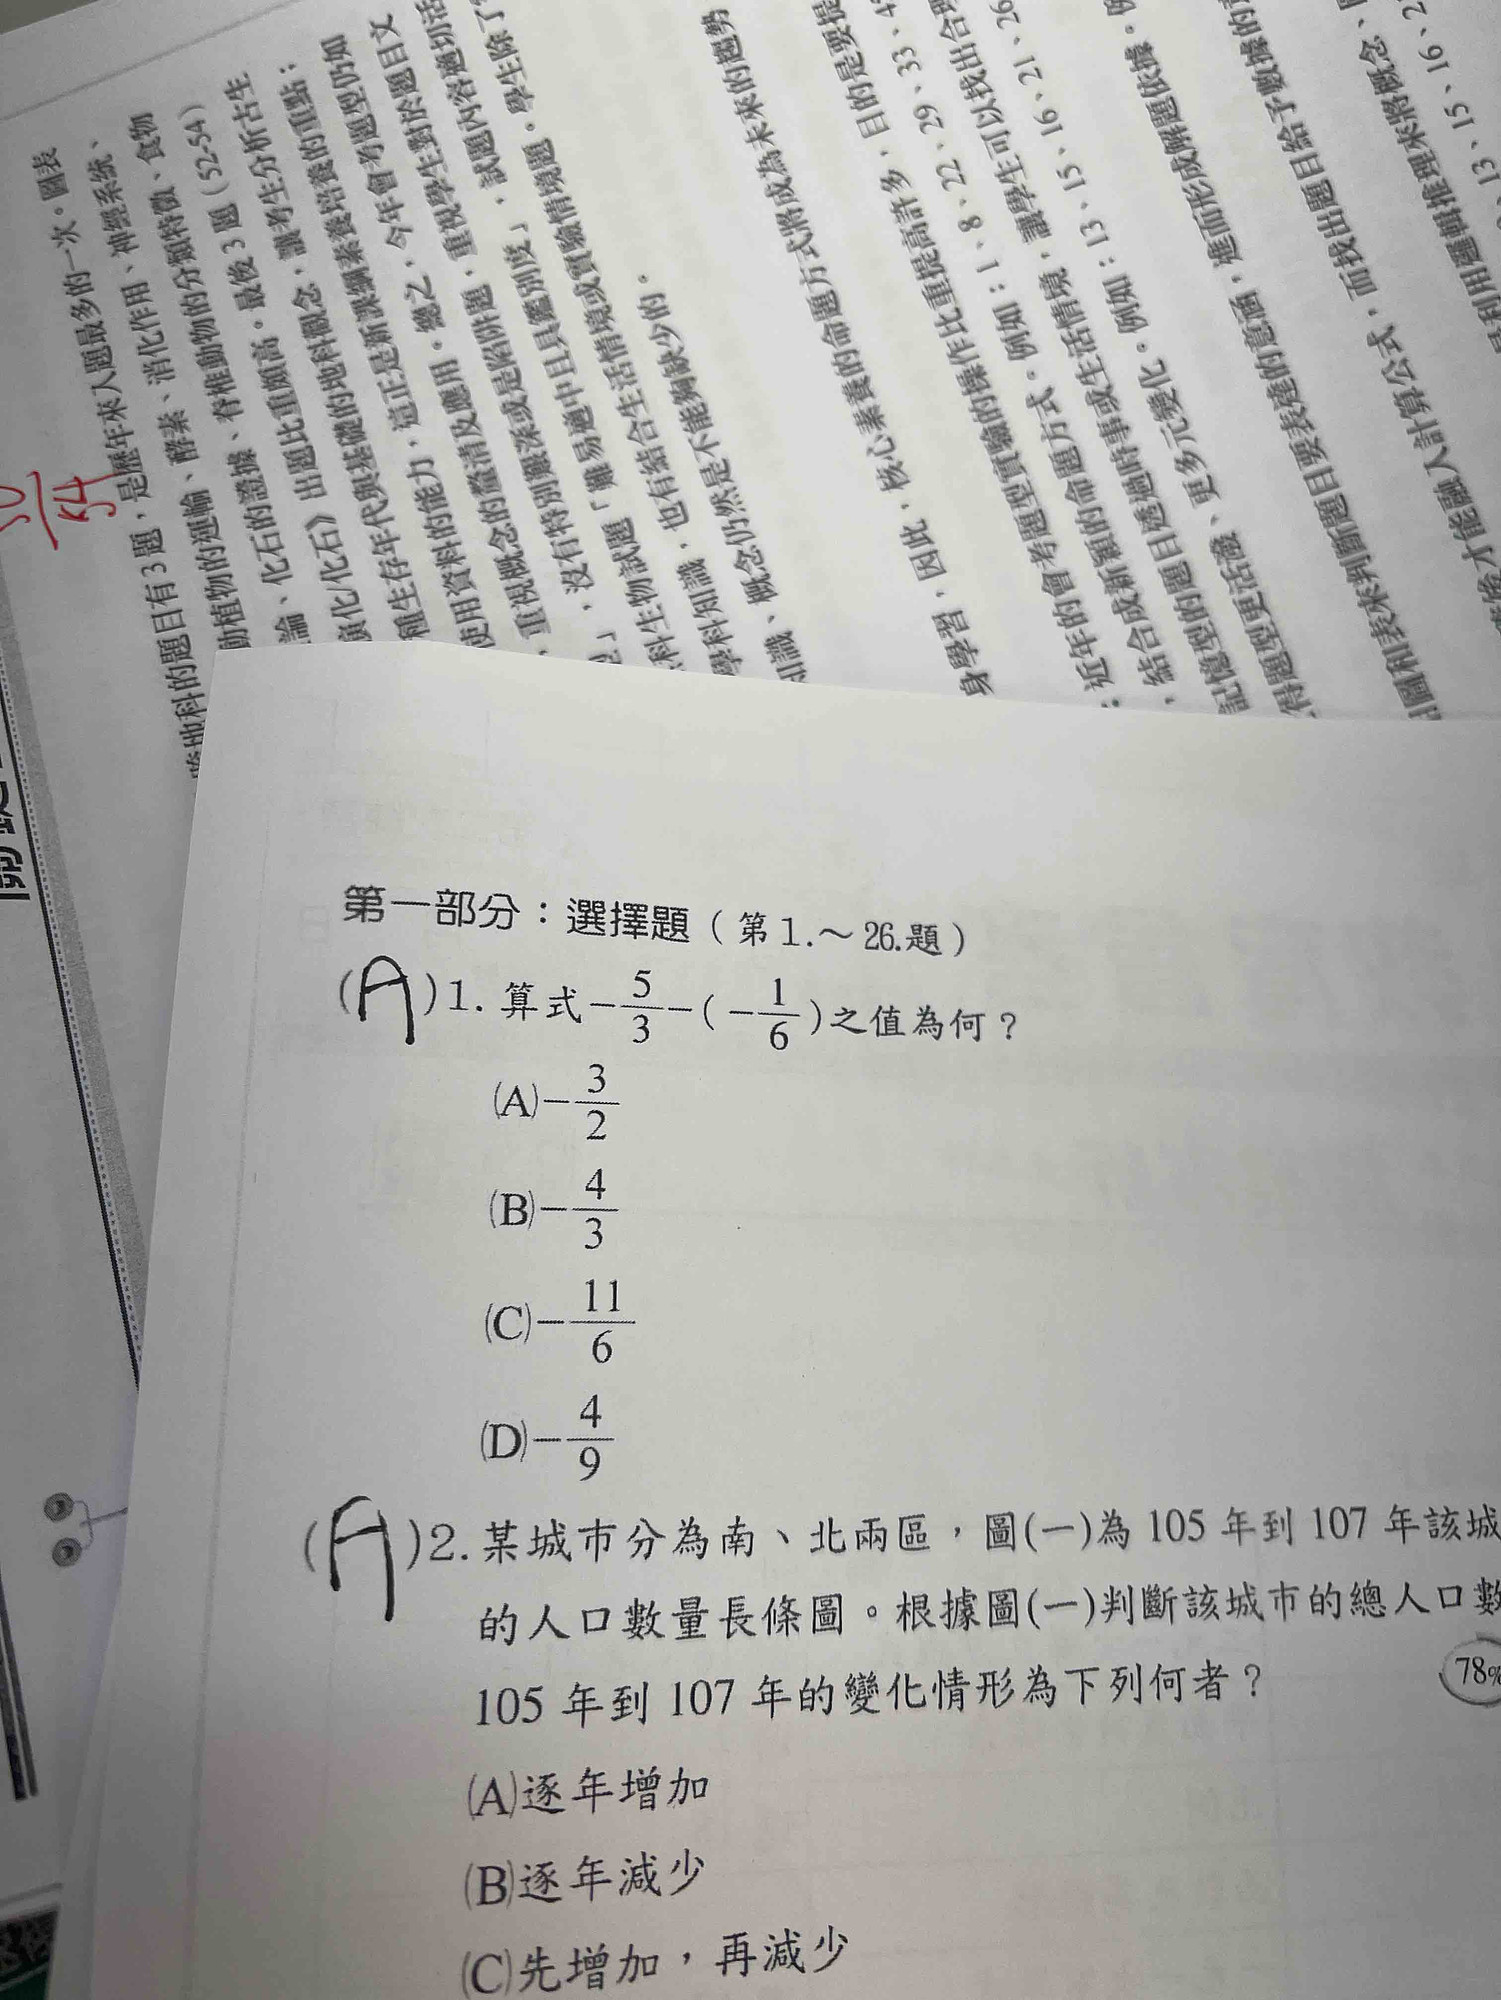 圖表
是歷年來入題最多的一次。
跨地科的題目有3題，
動植物的運輸、酵素、消化作用、神經系統、
化石的證據、脊椎動物的分類特徵、食物
演化/化石》出題比重頗高。最後3題（52-54）
種生存年代與基礎的地科概念，讓考生分析古生
使用資料的能力，這正是新課綱素養培養的重點；
重視概念的釐清及應用。總之，今年會考題型仍如
沒有特別艱深或是陷阱題，重視學生對於題目文
科生物試題「難易適中且具鑑別度」，試題內容適切活
學科知識，也有結合生活情境或實驗情境題。學生除了
知識、概念仍然是不能夠缺少的。
核心素養的命題方式將成為未來的趨勢
身學習，因此，
題型實驗的操作比重提高許多，目的是要
近年的會考題型例如：1、8、22、29、33、4
結合成新穎的命題方式。
記憶型的題目透過時事或生活情境，讓學生可以找出合理
得題型更活潑、更多元變化。例如：13、15、16、21、26
圖和表來判斷題目要表達的意涵，進而形成解題依據。例
才能融入計算公式，而找出題目給予數據的
是利用邏輯推理來將概念、
13、15、16、2
54
第一部分：選擇題（第1.～26.題）
(A)1. 算式－5/3－(－1/6)之值為何？
(A)－3/2
(B)－4/3
(C)－11/6
(D)－4/9
(A)2. 某城市分為南、北兩區，圖(一)為 105 年到 107 年該城
的人口數量長條圖。根據圖(一)判斷該城市的總人口數
105 年到 107 年的變化情形為下列何者？
78%
(A)逐年增加
(B)逐年減少
(C)先增加，再減少